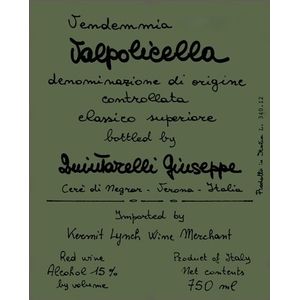 Vendemmia
Valpolicella
denominazione di origine
controllata
classico superiore
bottled by
Quintarelli Giuseppe
Cerè di Negrar - Verona - Italia
Imported by
Kermit Lynch Wine Merchant
Red wine
Alcohol 15%
by volume
Product of Italy
Net contents
750 ml
Prodotto in Italia L. 340.12